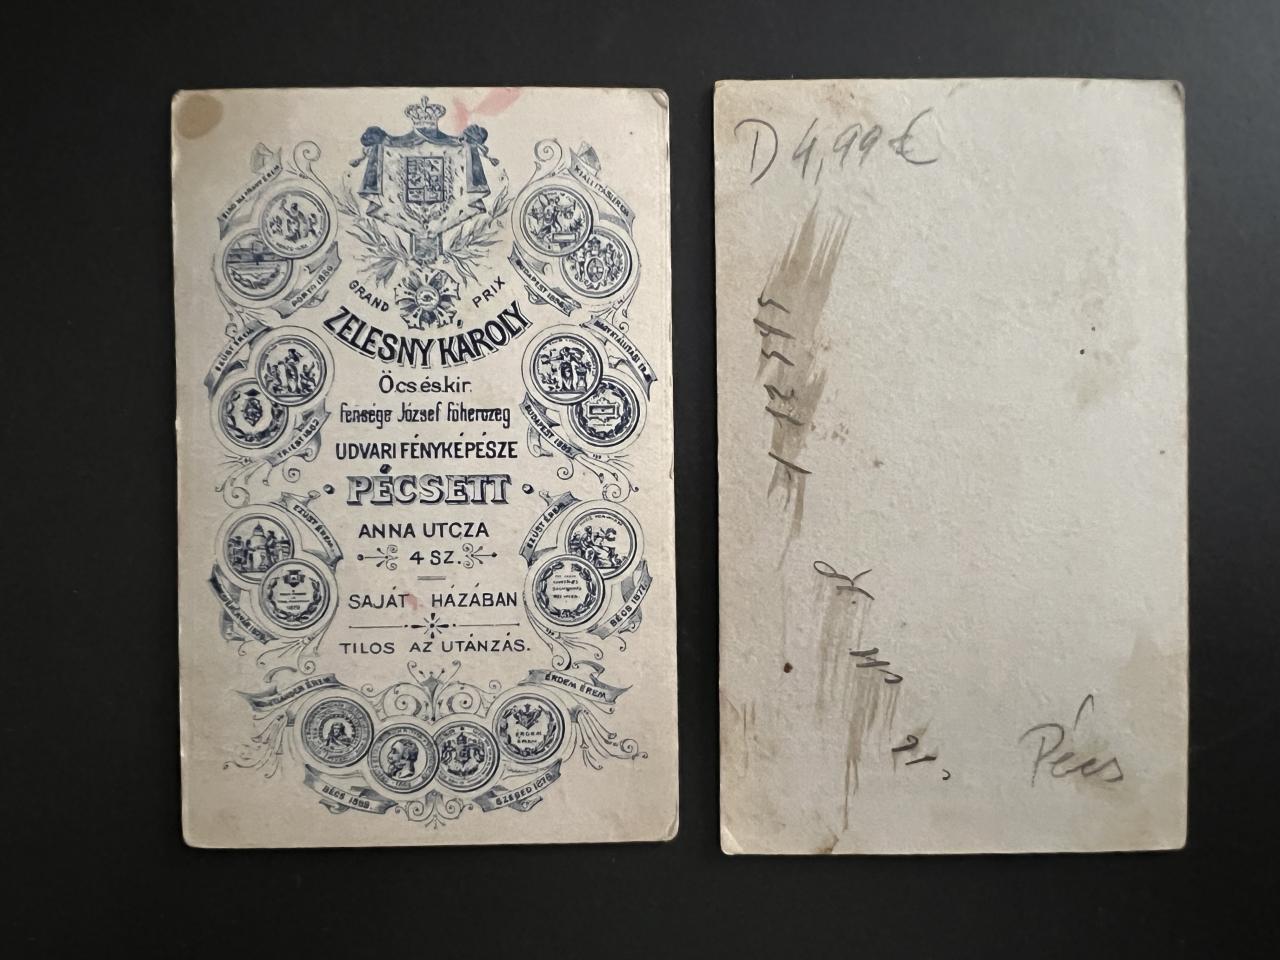 GRAND PRIX
ZELESNY KÁROLY
Ö cs és kir.
fensége József főherczeg
UDVARI FÉNYKÉPÉSZE
PÉCSETT
ANNA UTCZA
4 SZ.
SAJÁT HÁZÁBAN
TILOS AZ UTÁNZÁS.
PORTO 1886
KIÁLLÍTÁSI ÉREM
EZÜST ÉREM
TRIEST 1882
BUDAPEST 1885
EZÜST ÉREM
1879
EZÜST ÉREM
BÉCS 1877
ÉRDEM ÉREM
ÉRDEM
ÉREM
BÉCS 1888
SZEGED 1876
D 4,99 €
Pécs